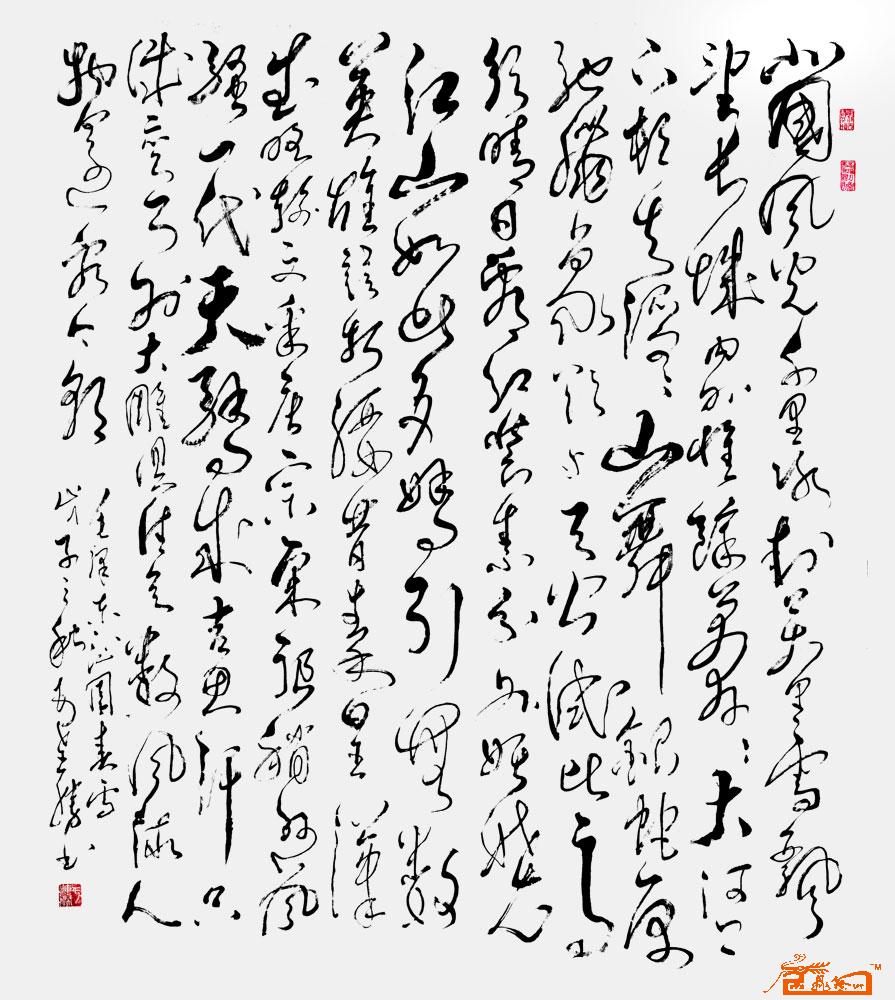 北國風光千里冰封萬里雪飄
望長城內外惟餘莽莽大河上
下頓失滔滔山舞銀蛇原
馳蠟象欲與天公試比高
須晴日看紅裝素裹分外妖嬈
江山如此多嬌引無數
英雄競折腰惜秦皇漢
武略輸文采唐宗宋祖稍遜風
騷一代天驕成吉思汗只
識彎弓射大雕俱往矣數風流人
物還看今朝
毛澤東沁園春雪
戊子之秋書